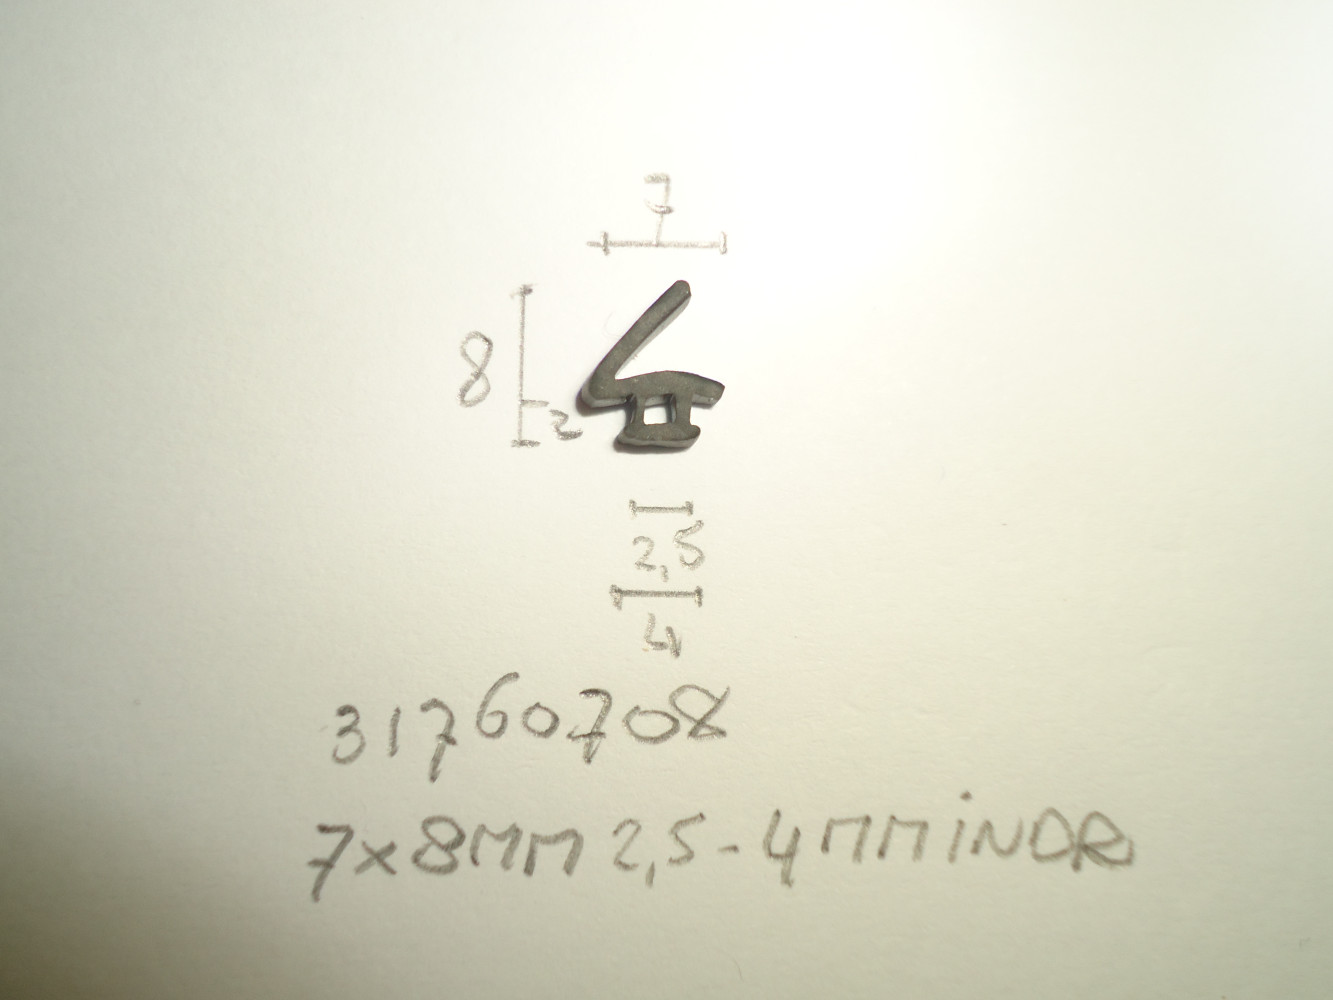 7
8
2
2,5
4
31760708
7x8MM 2,5-4MM INDR